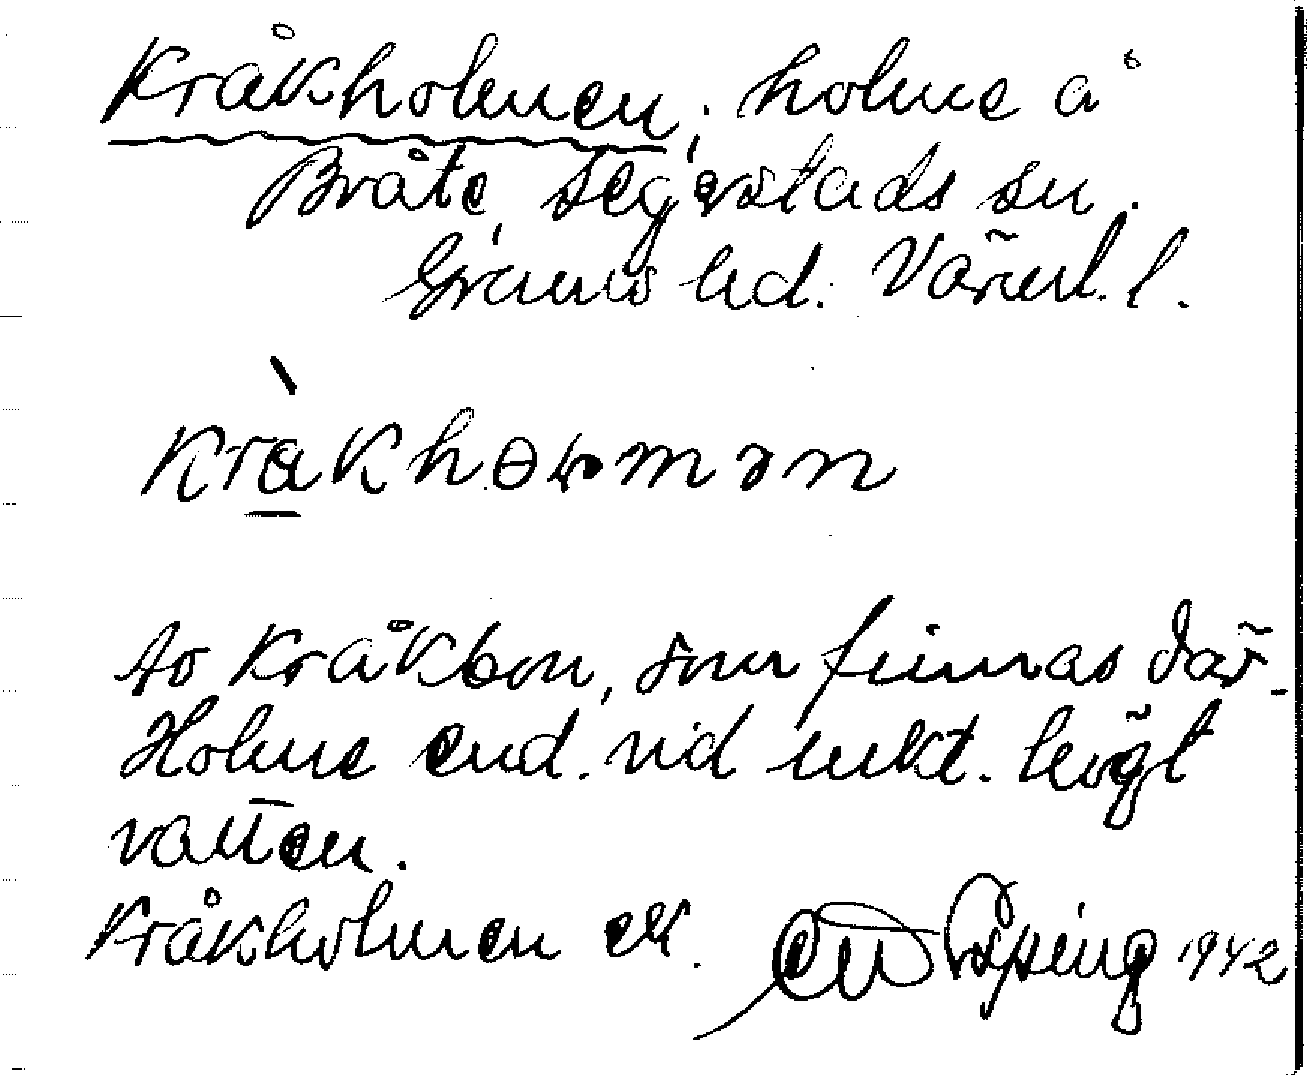 Kråkholmen; holme å
Bråte, Segerstads sn.
Grums hd. Värml. l.
Kråkhoɷmən
Av Kråkbon, som finnas där.
Holme end. vid mkt. högt
vatten.
Kråkholmen ek. 1942